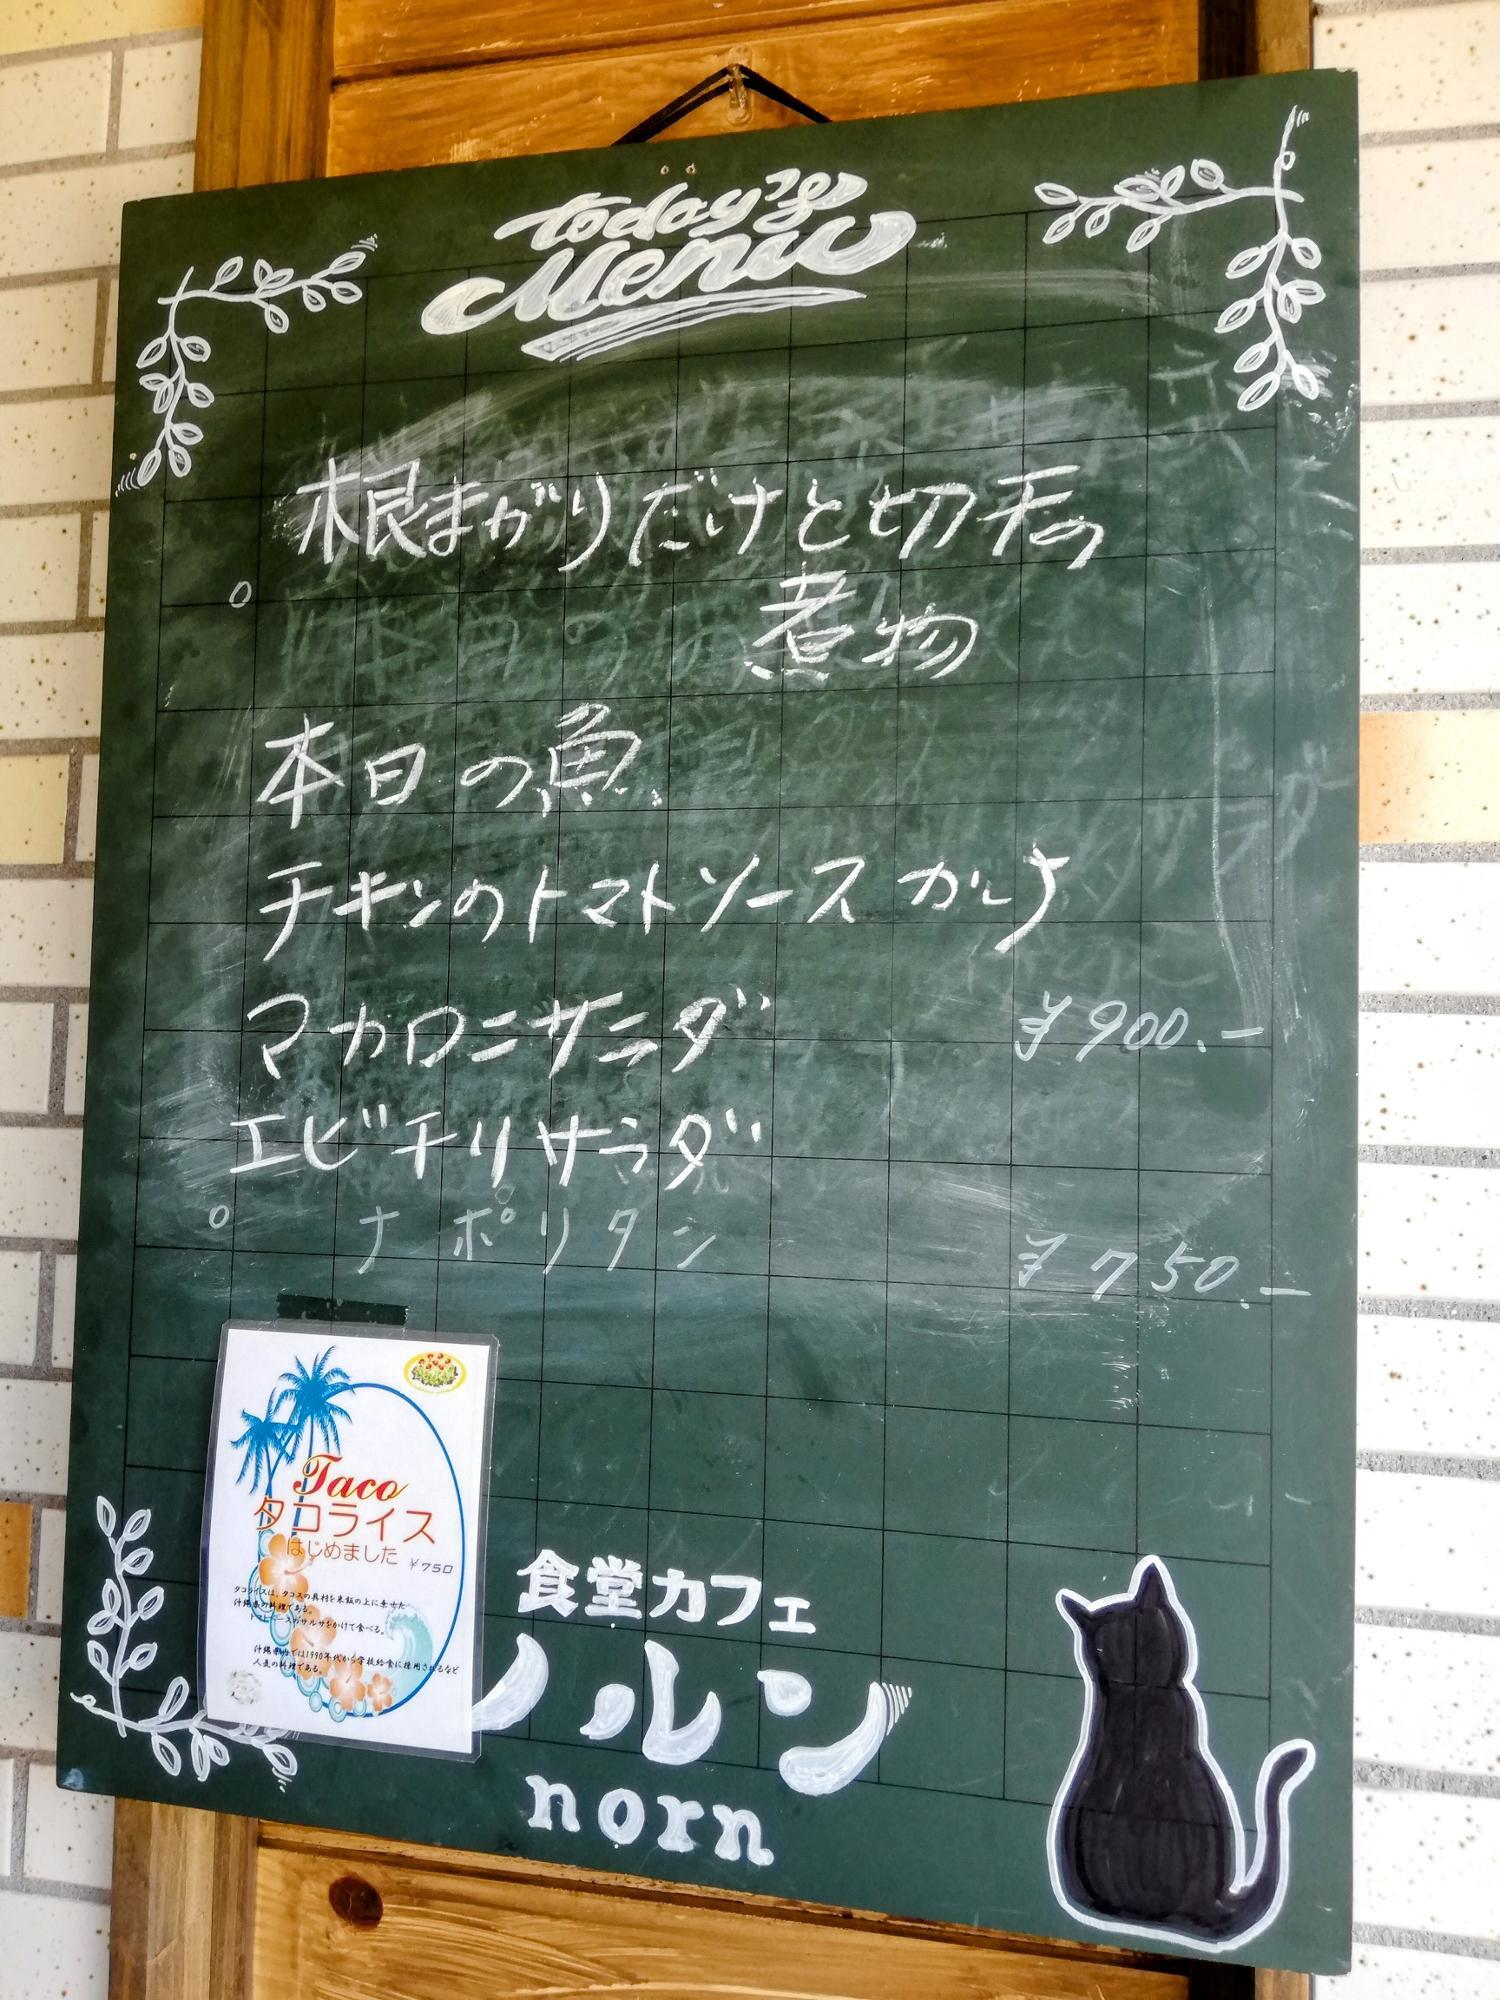 today's
Menu
根まがりだけと切天の
煮物
本日の魚
チキンのトマトソースかけ
マカロニサラダ ¥900.-
エビチリサラダ
ナポリタン ¥750.-
Taco
タコライス
はじめました ¥750
タコライスは、タコスの具材を米飯の上に乗せた
沖縄県の料理である。
トマトベースのサルサをかけて食べる。
沖縄県内では1990年代から学校給食に採用されるなど
人気の料理である。
食堂カフェ
ノルン
norn